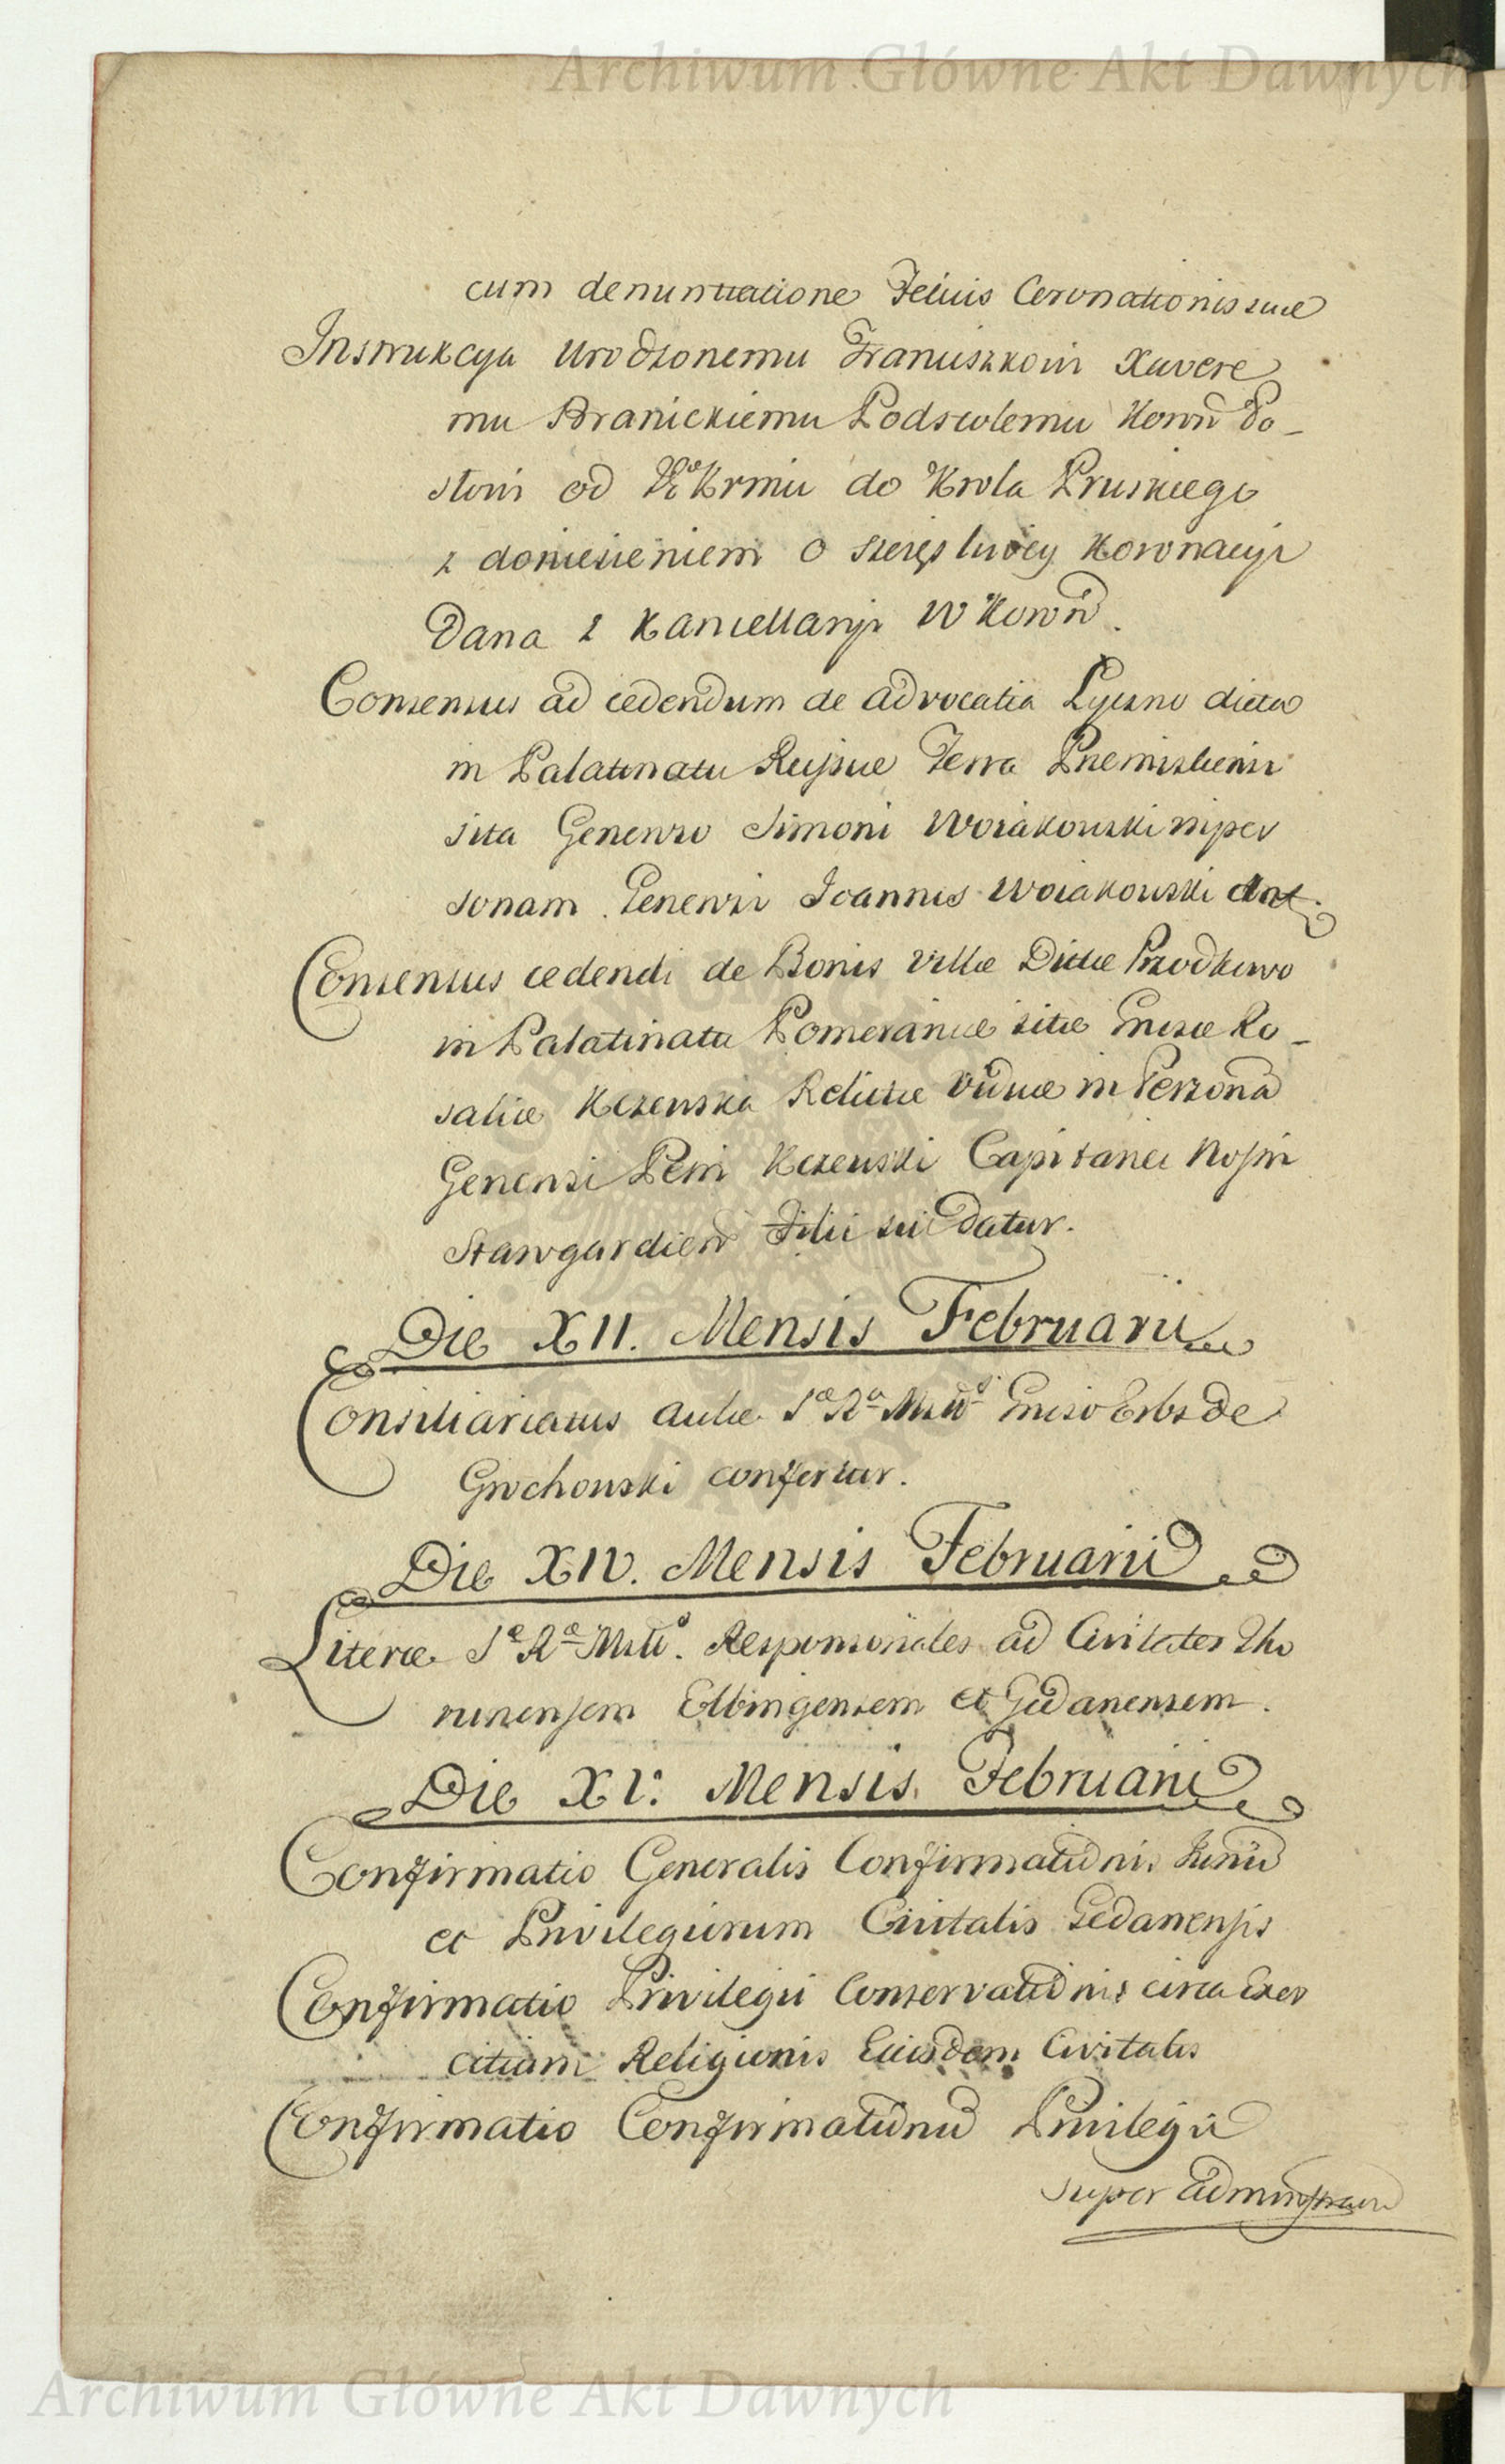 Archiwum Główne Akt Dawnych
cum denuntiatione Felicis Coronationis suæ
Instrukcya Urodzonemu Franciszkowi Xavere
mu Branickiemu Podstolemu Koron̄ Po-
słowi od do Krola Pruskiego
z doniesieniem o szczęsliwey Koronacyi
Dana z Kancellaryi W Koron̄.
Consensus ad cedendum de advocatia dicta
in Palatinatu Russiæ Terra Premisliensi
sita Generoso Simoni Woiakowski in per
sonam Generosi Joannis Woiakowski dat.
Consensus cedendi de Bonis Villæ Dictæ Przodkowo
in Palatinatu Pomeraniæ sitæ Gnosæ Ro-
saliæ Relictæ Viduæ in Personā
Generosi Capitanei
Stargardien̄ Filii sui Datur.
Die XII. Mensis Februarii
Consiliariatus Aulæ Sæ Ræ Mttis Gnoso Erbs de
Grochowski confertur.
Die XIV. Mensis Februarii
Literæ Sæ Ræ Mttis. Responsoriales ad Civitates Tho
runensem Elbingensem et Gedanensem.
Die XV. Mensis Februarii
Confirmatio Generalis Confirmationis Jurium
et Privilegiorum Civitatis Gedanensis
Confirmatio Privilegii Conservationis circa Exer
citium Religionis Eiusdem Civitatis
Confirmatio Confirmationū Privilegii
super
Archiwum Główne Akt Dawnych